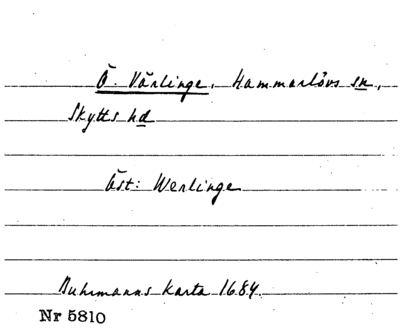 Ö. Värlinge, Hammarlövs sn,
Skytts hd
Öst: Werlinge
Buhrmanns karta 1684.
Nr 5810